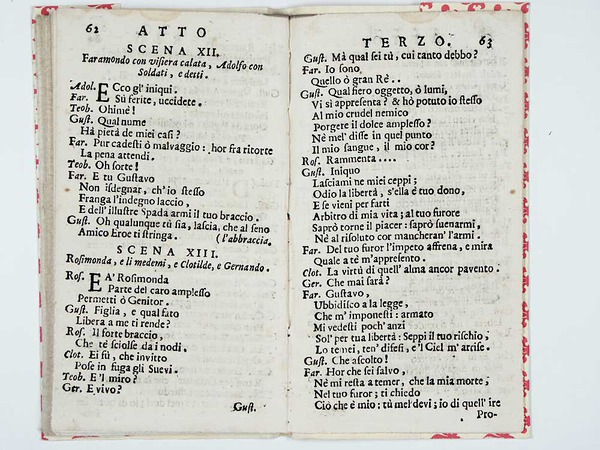 62 ATTO
SCENA XII.
Faramondo con visiera calata, Adolfo con
Soldati, e detti.
Adol. ECco gl' iniqui.
Far. Sù ferite, uccidete.
Teob. Ohimè!
Gust. Qual nume
Hà pietà de miei casi?
Far. Pur cadesti ò malvaggio: hor fra ritorte
La pena attendi.
Teob. Oh sorte!
Far. E tu Gustavo
Non isdegnar, ch' io stesso
Franga l'indegno laccio,
E dell' illustre Spada armi il tuo braccio.
Gust. Oh qualunque tù sia, lascia, che al seno
Amico Eroe ti stringa. (l'abbraccia.
SCENA XIII.
Rosimonda, e li medemi, e Clotilde, e Gernando.
Ros. EA' Rosimonda
Parte del caro amplesso
Permetti ò Genitor.
Gust. Figlia, e qual fato
Libera a me ti rende?
Ros. Il forte braccio,
Che tè sciolse da i nodi.
Clot. Ei fù, che invitto
Pose in fuga gli Suevi.
Teob. E 'l miro?
Ger. E vivo?
Gust.
TERZO. 63
Gust. Mà qual sei tù, cui tanto debbo?
Far. Io sono
Quello ò gran Rè..
Gust. Qual fiero oggetto, ò lumi,
Vi si appresenta? & hò potuto io stesso
Al mio crudel nemico
Porgete il dolce amplesso?
Nè mel' disse in quel punto
Il mio sangue, il mio cor?
Ros. Rammenta....
Gust. Iniquo
Lasciami ne miei ceppi;
Odio la libertà, s'ella è tuo dono,
E se vieni per farti
Arbitro di mia vita; al tuo furore
Saprò torne il piacer: saprò suenarmi,
Nè al risoluto cor mancheran' l'armi.
Far. Del tuo furor l'impeto affrena, e mira
Quale a tè m'appresento.
Clot. La virtù di quell' alma ancor pavento.
Ger. Che mai sarà?
Far. Gustavo,
Ubbidisco a la legge,
Che m' imponesti: armato
Mi vedesti poch' anzi
Sol' per tua libertà: Seppi il tuo rischio;
Lo temei, ten' difesi, e 'l Ciel m' arrise.
Gust. Che ascolto!
Far. Hor che sei salvo,
Nè mi resta a temer, che la mia morte,
Nel tuo furor; ti chiedo
Ciò che è mio: tù mel devi; io di quell' ire
Pro-